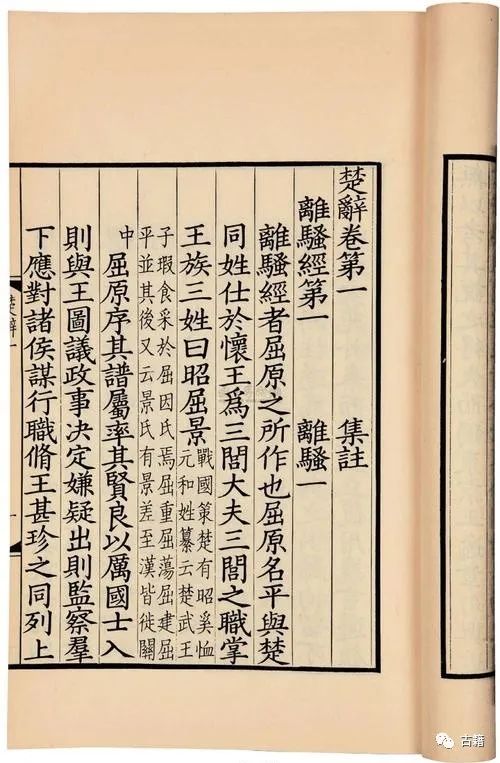 楚辭卷第一 集註
離騷經第一 離騷一
離騷經者屈原之所作也屈原名平與楚
同姓仕於懷王爲三閭大夫三閭之職掌
王族三姓曰昭屈景 戰國策楚有昭奚恤
元和姓纂云楚武王
子瑕食采於屈因氏焉屈重屈蕩屈建屈
平並其後又云景氏有景差至漢皆徙關
中 屈原序其譜屬率其賢良以厲國士入
則與王圖議政事决定嫌疑出則監察羣
下應對諸侯謀行職脩王甚珍之同列上
古籍